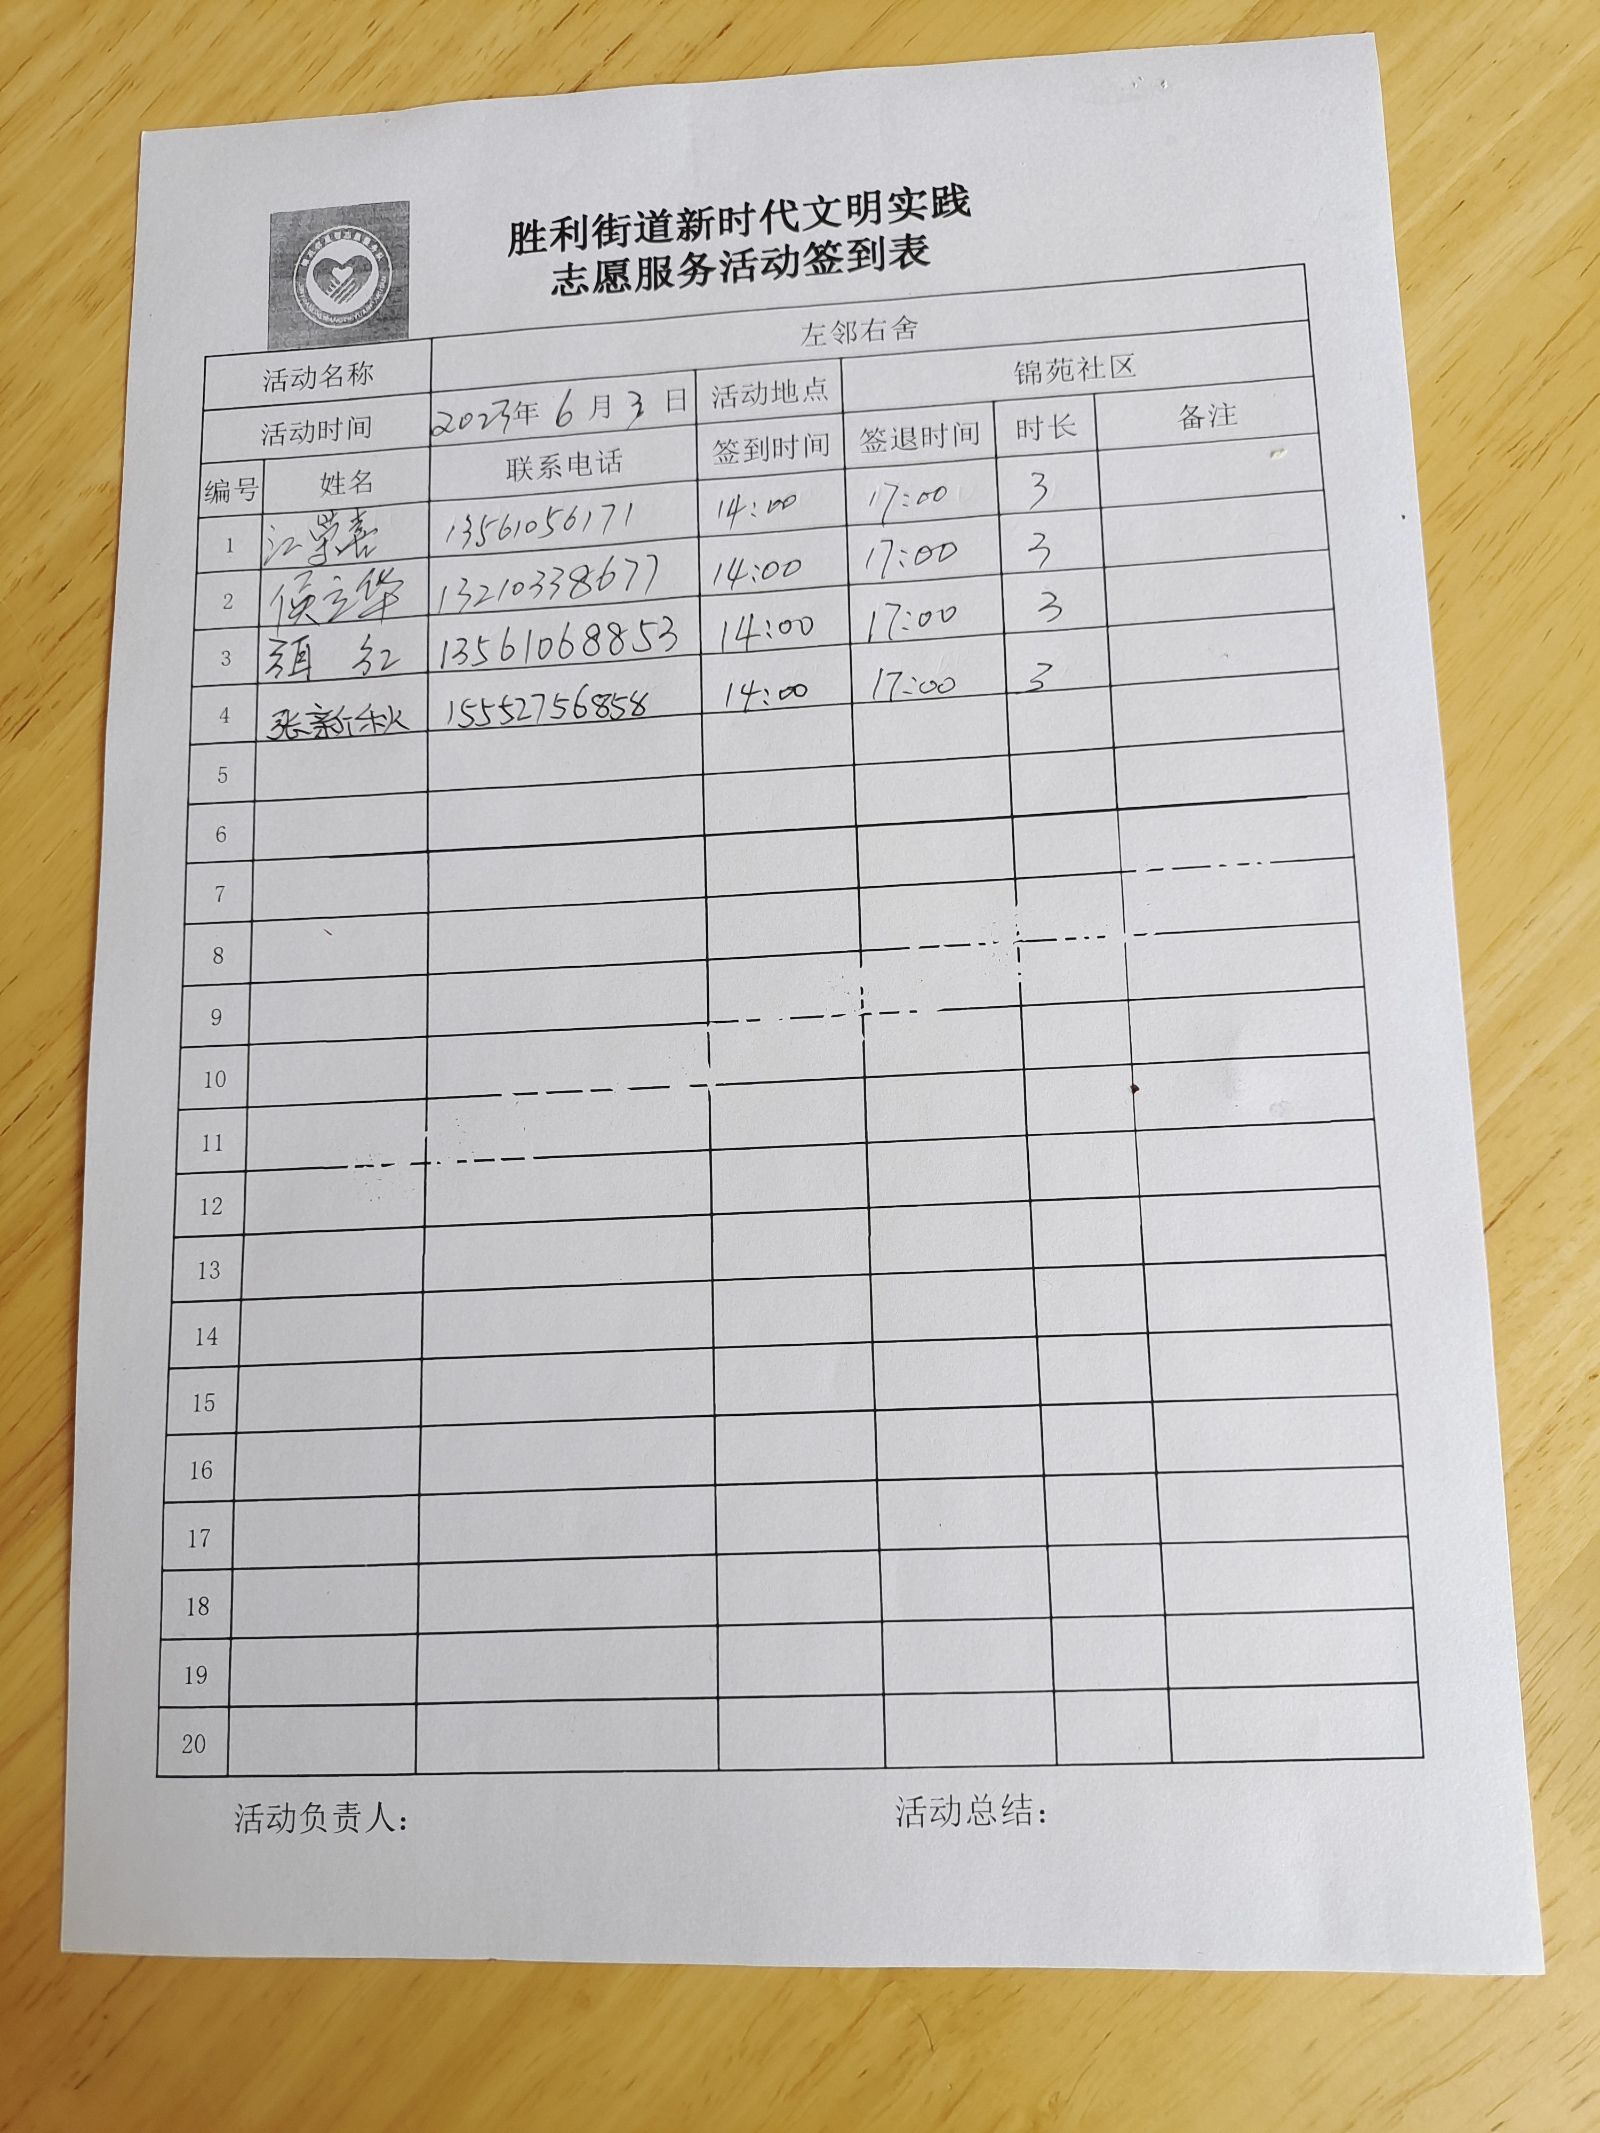 胜利街道新时代文明实践
志愿服务活动签到表
活动名称 左邻右舍
活动时间 2023年 6 月 3 日 活动地点 锦苑社区
编号 姓名 联系电话 签到时间 签退时间 时长 备注
1 江荣喜 13561056171 14:00 17:00 3
2 侯立华 13210338677 14:00 17:00 3
3 红 13561068853 14:00 17:00 3
4 张新秋 15552756858 14:00 17:00 3
5
6
7
8
9
10
11
12
13
14
15
16
17
18
19
20
活动负责人： 活动总结：